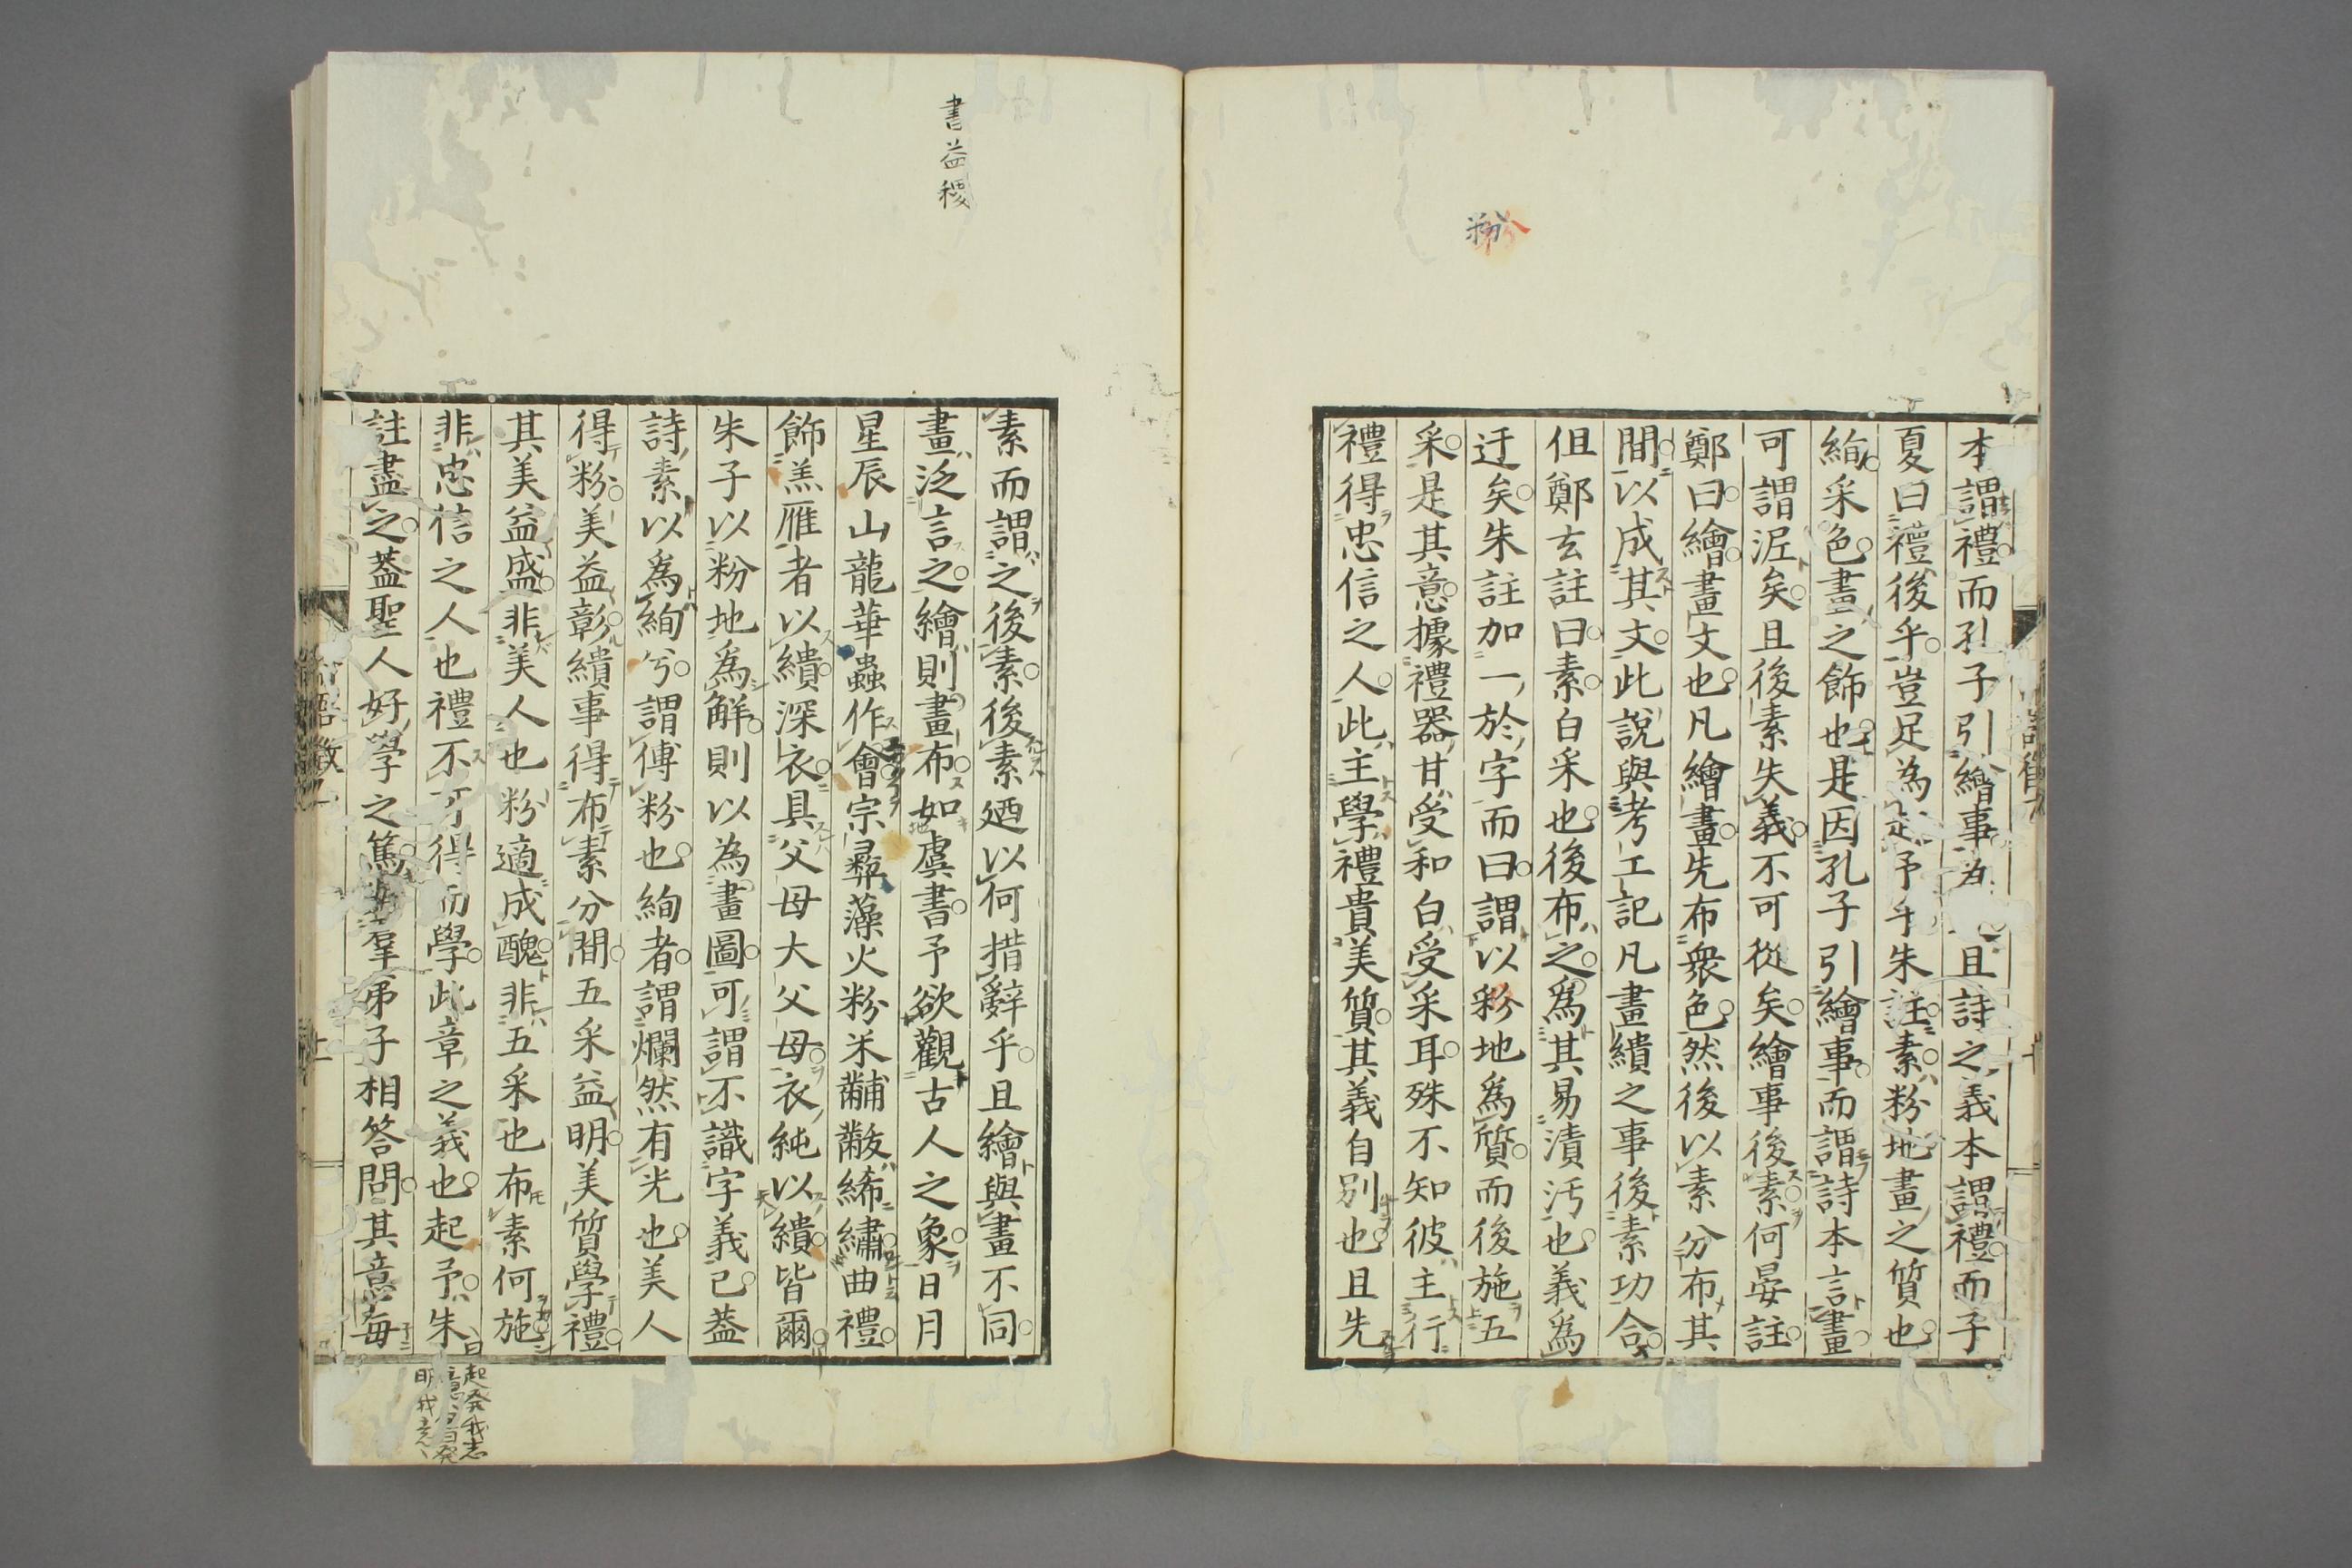 粉
本謂禮而孔子引繪事為且詩之義本謂禮而子
夏曰禮後乎豈足為起予乎朱註素粉地畫之質也
絢采色畫之飾也是因孔子引繪事而謂詩本言畫
可謂泥矣且後素失義不可從矣繪事後素何晏註
鄭曰繪畫文也凡繪畫先布衆色然後以素分布其
間以成其文此說與考工記凡畫繢之事後素功合
伹鄭玄註曰素白采也後布之爲其易漬汚也義爲
迂矣朱註加一於字而曰謂以粉地爲質而後施五
采是其意據禮器甘受和白受采耳殊不知彼主行
禮得忠信之人此主學禮貴美質其義自別也且先
書益稷
素而謂之後素後素廼以何措辭乎且繪與畫不同
畫泛言之繪則畫布如虞書予欲觀古人之象日月
星辰山龍華蟲作會宗彛藻火粉米黼黻絺繡曲禮
飾羔雁者以繢深衣具父母大父母衣純以繢皆爾
朱子以粉地爲觧則以為畫圖可謂不識字義已蓋
詩素以爲絢兮謂傅粉也絢者謂爛然有光也美人
得粉美益彰繢事得布素分間五采益明美質學禮
其美益盛非美人也粉適成醜非五采也布素何施
非忠信之人也禮不可得而學此章之義也起予朱
註盡之蓋聖人好學之篤羣弟子相答問其意每
曰起発我志
明我意